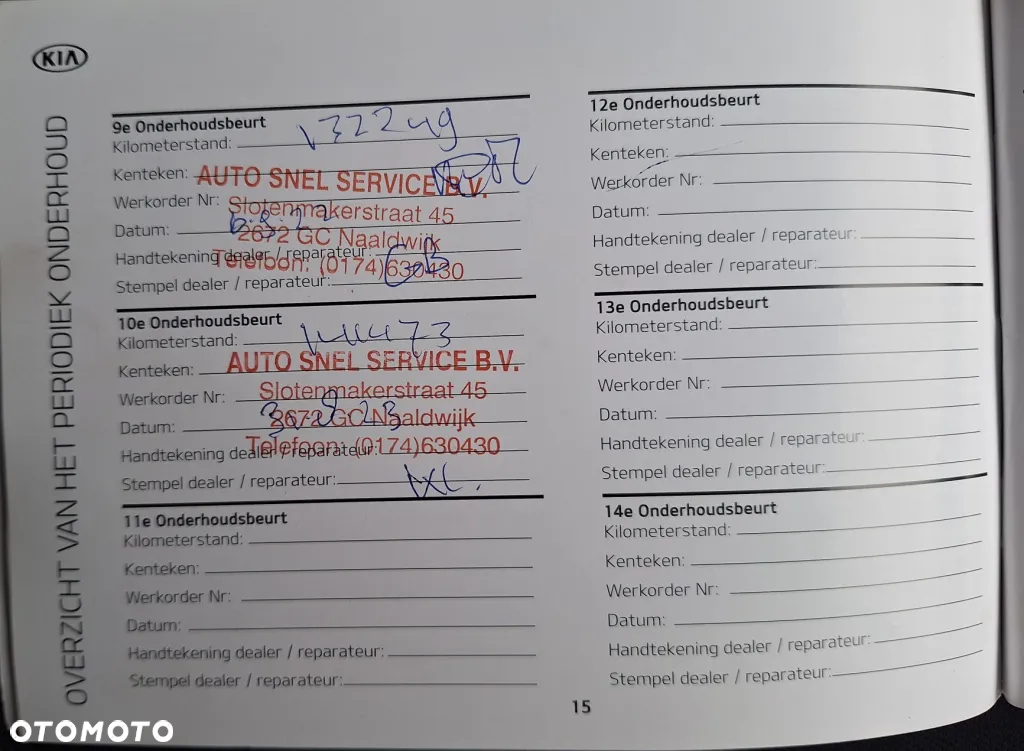 KIA
OVERZICHT VAN HET PERIODIEK ONDERHOUD
9e Onderhoudsbeurt
Kilometerstand: 132249
Kenteken:
AUTO SNEL SERVICE B.V.
Werkorder Nr:
Slotenmakerstraat 45
Datum:
2672 GC Naaldwijk
Handtekening dealer / reparateur:
Telefoon: (0174)630430
Stempel dealer / reparateur:
10e Onderhoudsbeurt
Kilometerstand:
AUTO SNEL SERVICE B.V.
Kenteken:
Slotenmakerstraat 45
Werkorder Nr:
2672 GC Naaldwijk
Datum:
Telefoon: (0174)630430
Handtekening dealer / reparateur:
Stempel dealer / reparateur:
11e Onderhoudsbeurt
Kilometerstand:
Kenteken:
Werkorder Nr:
Datum:
Handtekening dealer / reparateur:
Stempel dealer / reparateur:
12e Onderhoudsbeurt
Kilometerstand:
Kenteken:
Werkorder Nr:
Datum:
Handtekening dealer / reparateur:
Stempel dealer / reparateur:
13e Onderhoudsbeurt
Kilometerstand:
Kenteken:
Werkorder Nr:
Datum:
Handtekening dealer / reparateur:
Stempel dealer / reparateur:
14e Onderhoudsbeurt
Kilometerstand:
Kenteken:
Werkorder Nr:
Datum:
Handtekening dealer / reparateur:
Stempel dealer / reparateur:
15
OTOMOTO